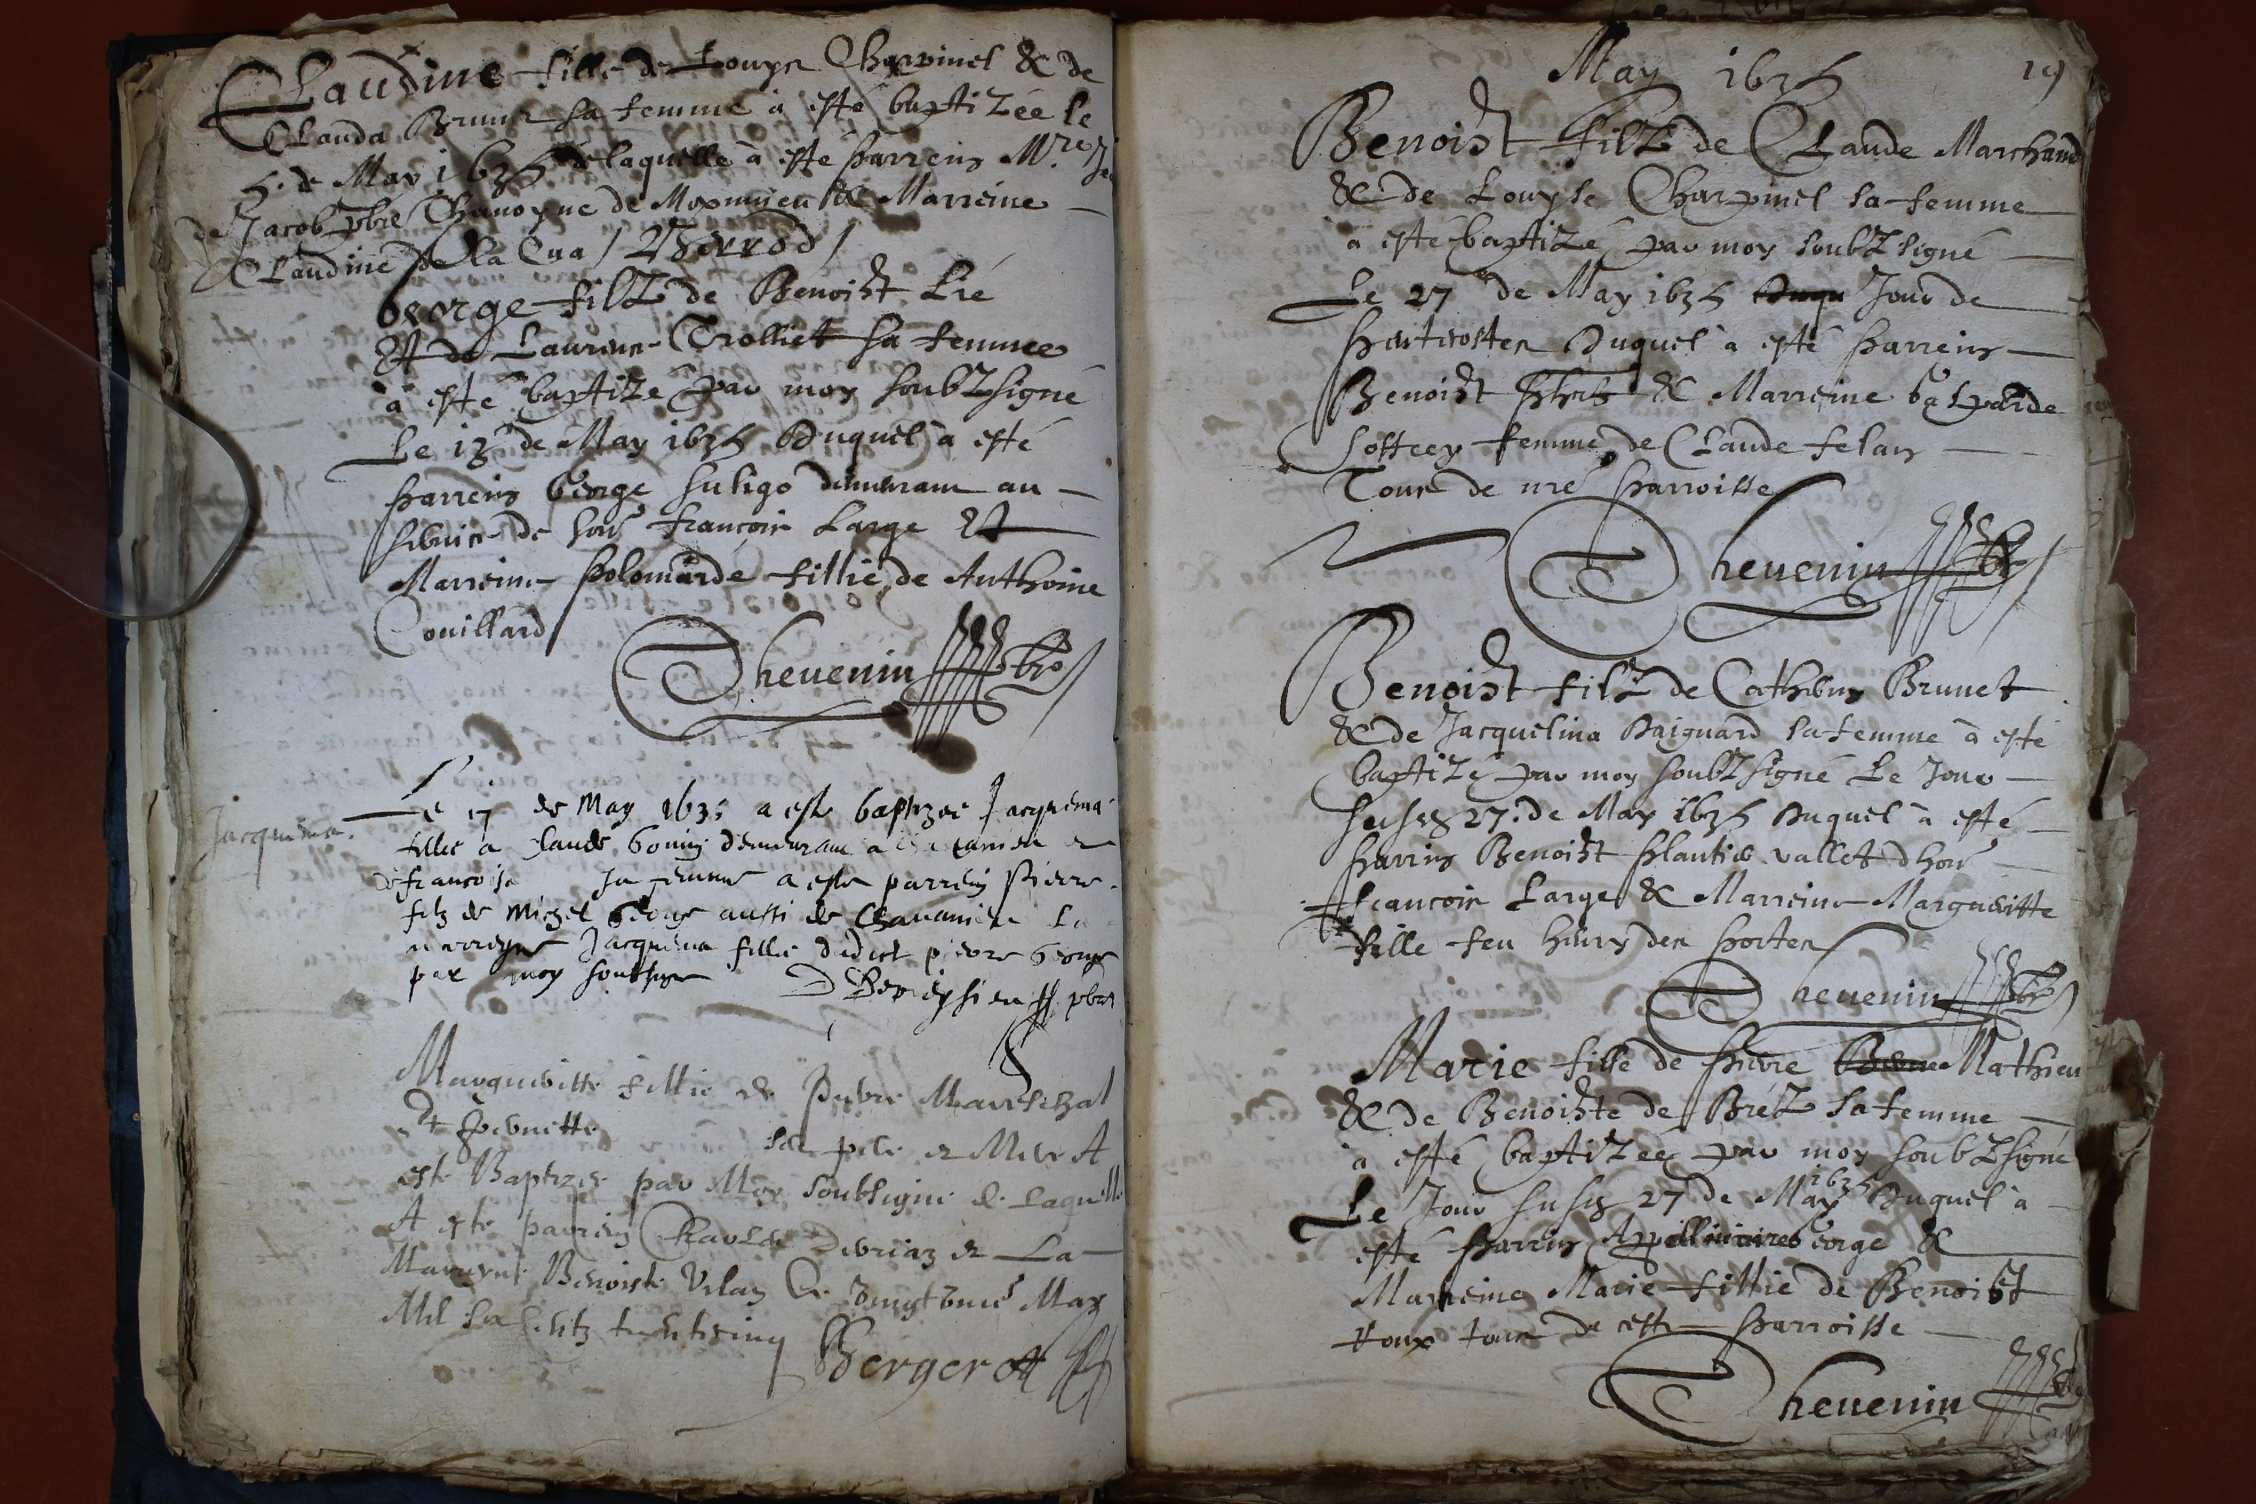 Claudine fille de Louys Charpinel & de
Clauda Brun sa femme à esté baptizée le
5. de May 1635 de laquelle à esté Parrein Mre
de Jacob pbre Chanoyne de Meximieu & Marreine
Claudine de la Cua / Verrod /
George filz de Benoist Lié
Et de Laurence Trolliet sa femme
à esté baptizé par moy soubzsigné
Le 13 de May 1635 Duquel à esté
Parrein George demeurant au
service de honr françois Large Et
Marreine Polomarde fillie de Anthoine
Couillard
Thevenin pbre
Jacquema.
Le 17 de May 1635 a este baptizee Jacquema
fillie a Claude Gonin demeurant a et
de francoise sa femme a este parrein Pierre
filz de Michel George aussi de Chavanieu La
marreyne Jacquema fillie dudict pierre George
par moy soubsigne D Bereysieu pbre
Margueritte fillie de Pierre Mareschal
Et Pernette ses pere et Mere A
este Baptizée par Moy soubsigné de laquelle
A este parrein Claude et La
Marreyne Benoiste Velas Le May
Mil six centz trente cinq
Bergerot
May 1635
19
Benoist filz de Claude Marchand
& de Louyse Charpinel sa femme
à esté baptizé par moy soubzsigné
Le 27 de May 1635 Jour de
Pentecostes Duquel à esté Parrein
Benoist & Marreine Gasparde
femme de Claude felan
Tous de nre Parroisse
Thevenin pbre
Benoist filz de Catherin Brunet
& de Jacquelina Daignard sa femme à esté
baptizé par moy soubzsigné Le Jour
susd 27. de May 1635 Duquel à esté
Parrin Benoist Plantier vallet dhonr
francois Large & Marreine Margueritte
fille feu henry des Portes
Thevenin pbre
Marie fille de Pierre Mathieu
& de Benoiste de Bréz sa femme
à esté baptizée par moy soubzsigné
Le Jour susd 27 de May 1635 Duquel à
esté Parrein Appollinaire George &
Marreine Marie fillie de Benoist
Roux tous de ceste Parroisse
Thevenin